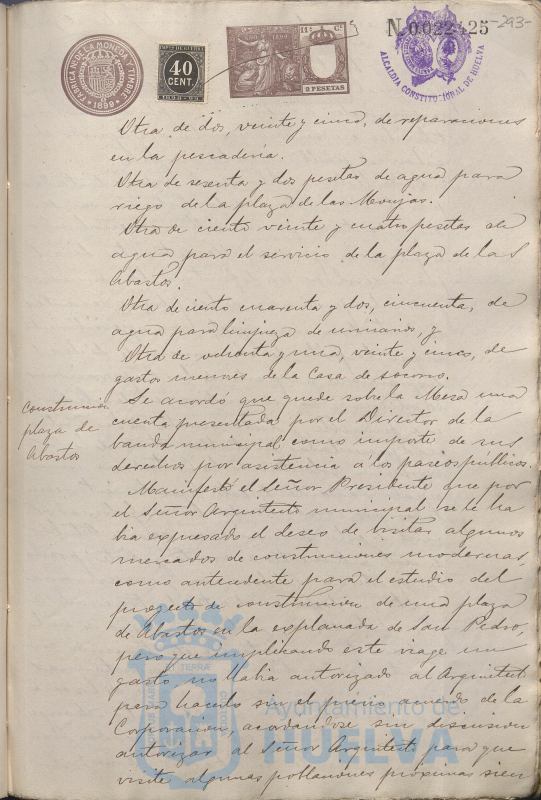 FABRICA DE LA MONEDA Y TIMBRE
1899
40
CENT.
11ª Cª
2 PESETAS
N.0.022.425
-293-
ALCALDIA CONSTITUCIONAL DE HUELVA
Otra de dos, veinte y cinco, de reparaciones
en la pescadería.
Otra de sesenta y dos pesetas de agua para
riego de la plaza de las Monjas.
Otra de ciento veinte y cuatro pesetas de
agua para el servicio de la plaza de las
Abastos.
Otra de ciento cuarenta y dos, cincuenta, de
agua para limpieza de urinarios, y
Otra de ochenta y una, veinte y cinco, de
gastos menores de la Casa de socorro.
Construccion
plaza de
Abastos
Se acordó que quede sobre la Mesa una
cuenta presentada por el Director de la
banda municipal como importe de sus
derechos por asistencia á los paseos públicos.
Manifestó el Señor Presidente que por
el Señor Arquitecto municipal se le ha
bia expresado el deseo de visitar algunos
mercados de construcciones modernas,
como antecedente para el estudio del
proyecto de construccion de una plaza
de Abastos en la explanada de San Pedro,
pero que implicando este viage un
gasto no habia autorizado al Arquitecto
para hacerlo sin el previo acuerdo de la
Corporacion, acordandose sin discusion
autorizar al Señor Arquitecto para que
visite algunas poblaciones próximas sien
Ayuntamiento de
HUELVA